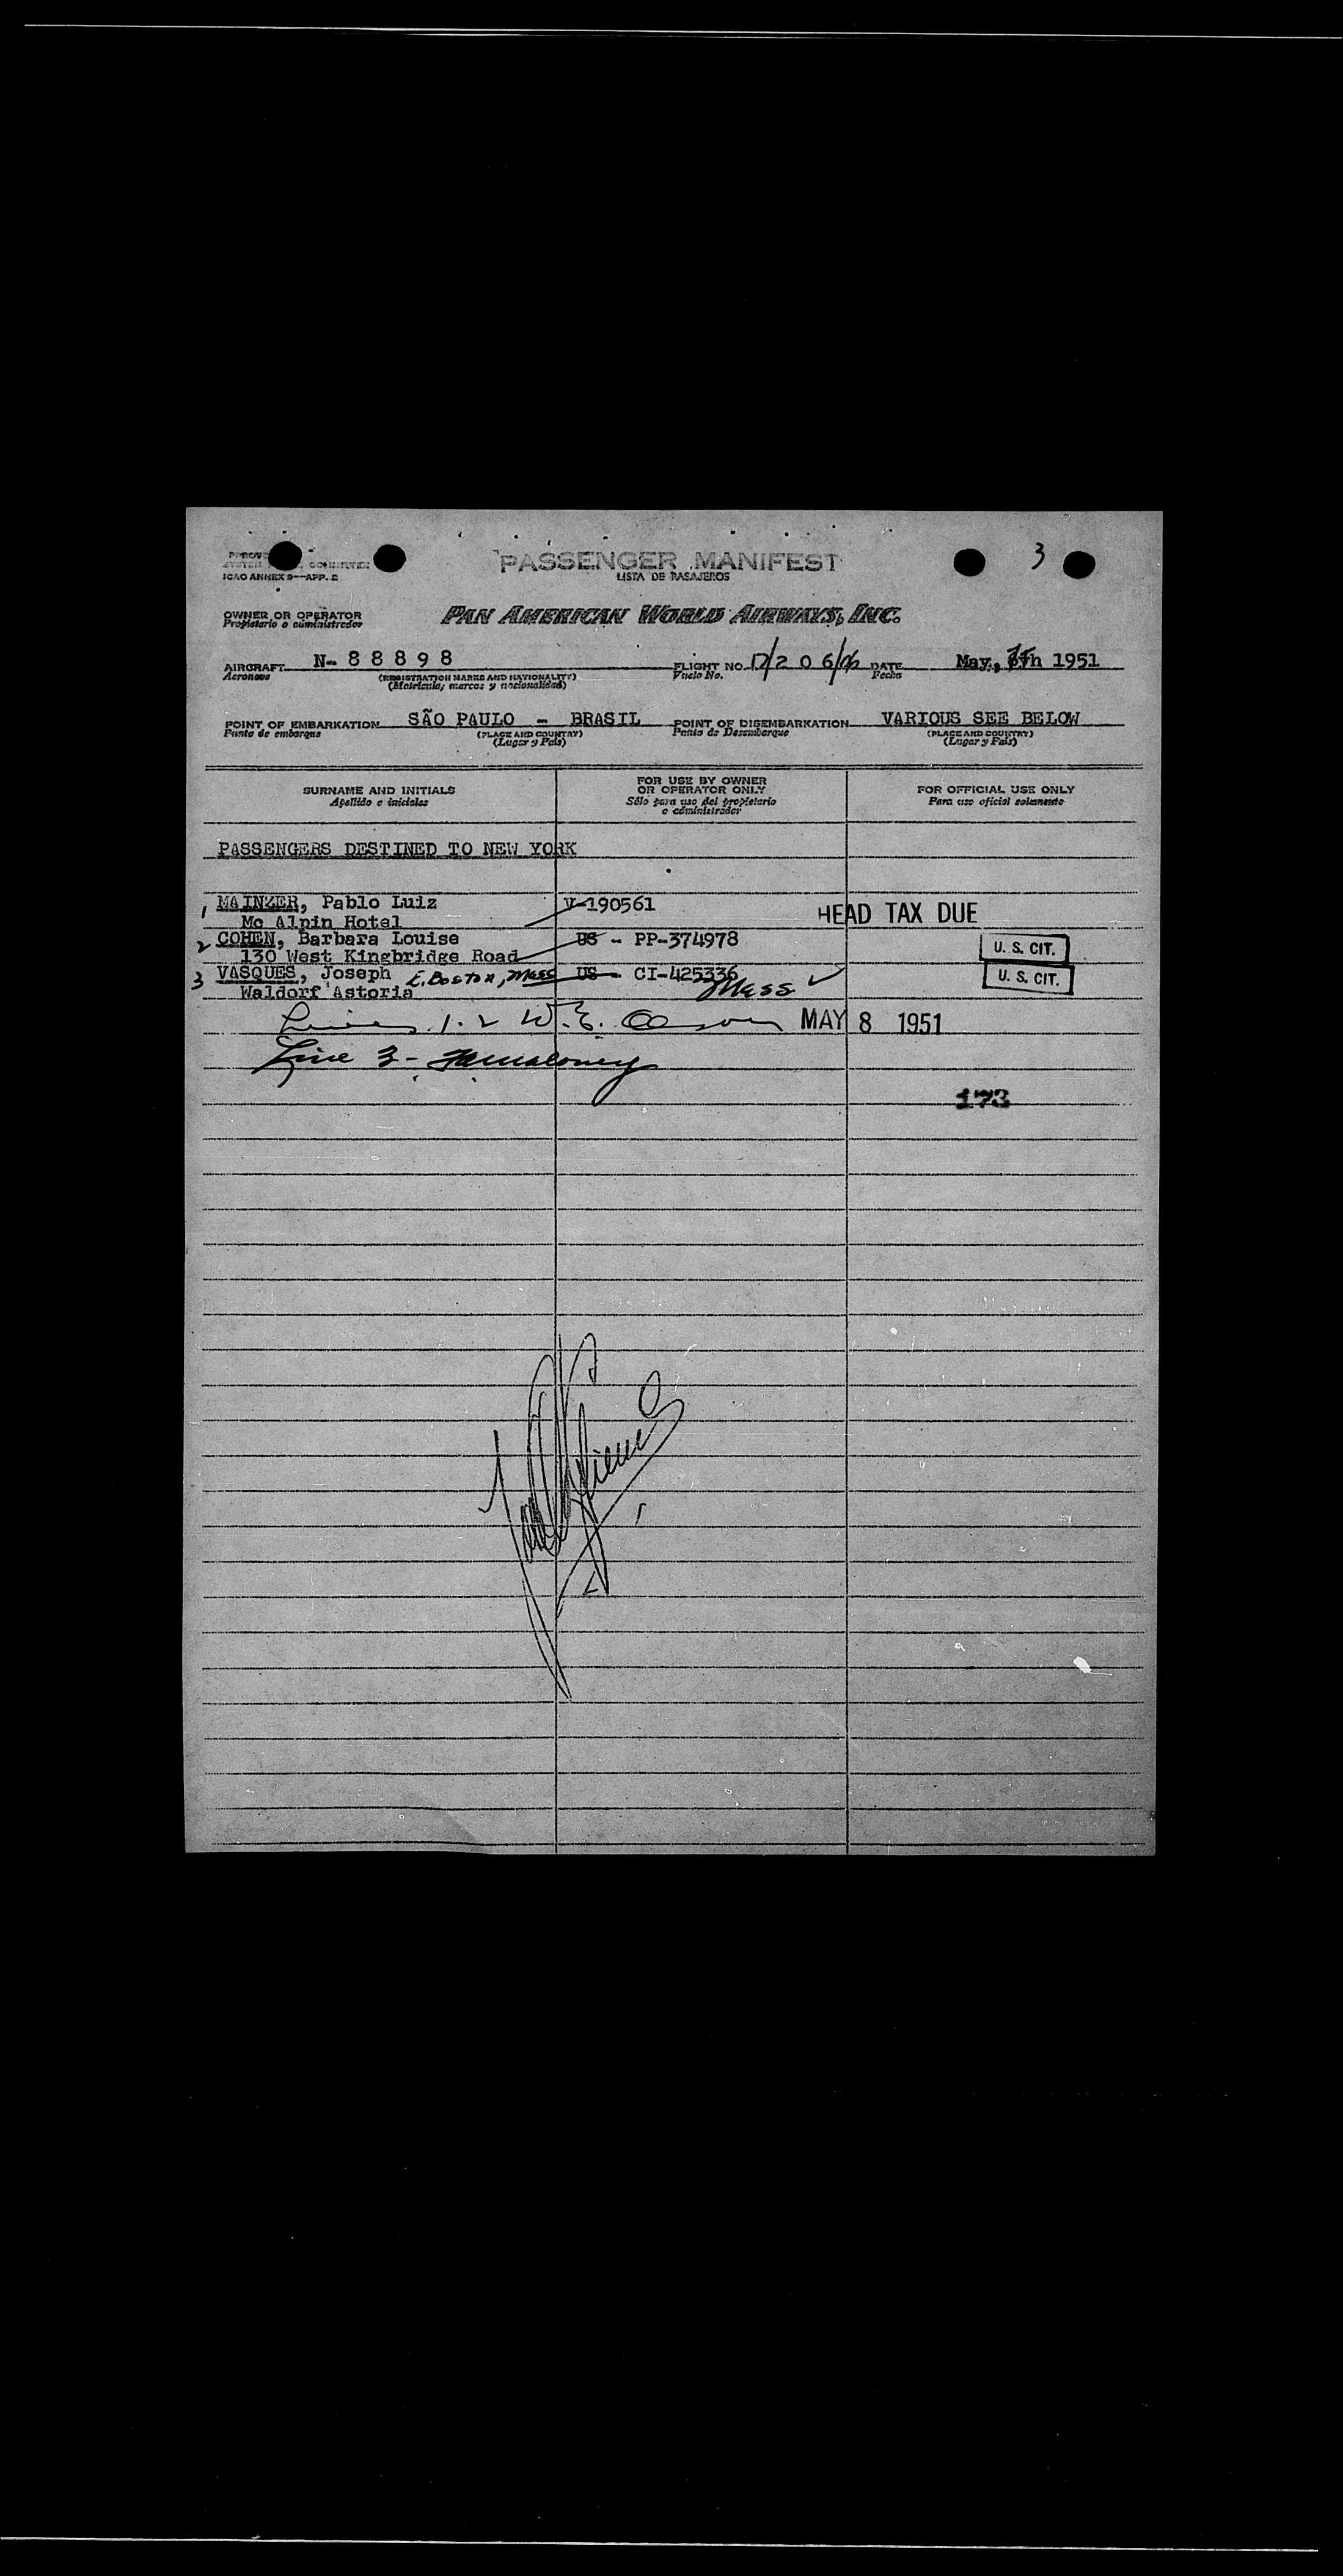 PASSENGER MANIFEST
LISTA DE PASAJEROS
3
ICAO ANNEX 9—APP. 2
OWNER OR OPERATOR
Propietario o administrador
PAN AMERICAN WORLD AIRWAYS, INC.
AIRCRAFT N- 8 8 8 9 8 FLIGHT NO. 2 0 6/06 DATE May, 1951
Aeronave (REGISTRATION MARKS AND NATIONALITY) Vuelo No. Fecha
(Matrícula, marcas y nacionalidad)
POINT OF EMBARKATION SÃO PAULO - BRASIL POINT OF DISEMBARKATION VARIOUS SEE BELOW
Punto de embarque (PLACE AND COUNTRY) Punto de Desembarque (PLACE AND COUNTRY)
(Lugar y País) (Lugar y País)
SURNAME AND INITIALS
Apellido e iniciales
FOR USE BY OWNER
OR OPERATOR ONLY
Sólo para uso del propietario
o administrador
FOR OFFICIAL USE ONLY
Para uso oficial solamente
PASSENGERS DESTINED TO NEW YORK
1 MAINZER, Pablo Luiz V-190561
Mc Alpin Hotel HEAD TAX DUE
2 COHEN, Barbara Louise US - PP-374978 U. S. CIT.
130 West Kingbridge Road
3 VASQUES, Joseph E. Boston, Mass US - CI-425336 U. S. CIT.
Waldorf Astoria Mass
Lines 1-2 W. E. MAY 8 1951
Line 3-
173